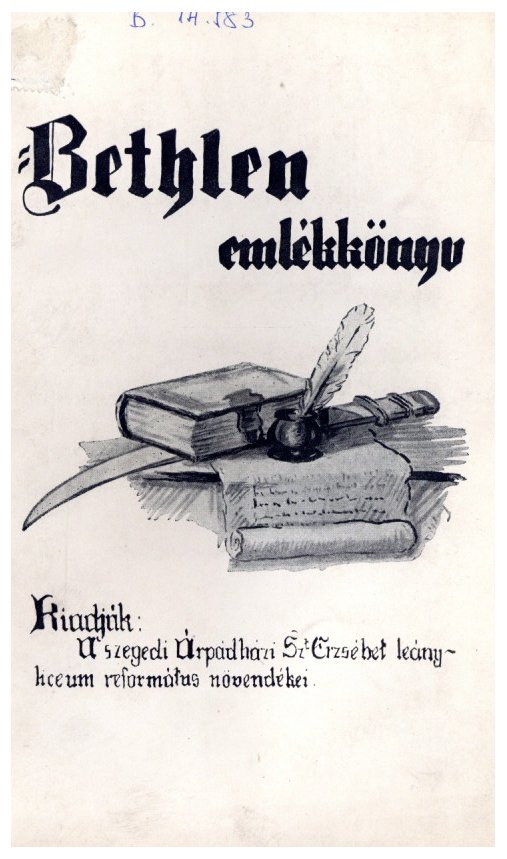 B. 14.183
Bethlen
emlékkönyv
Kiadják:
A' szegedi Árpádházi Szt Erzsébet leány-
liceum református növendékei.